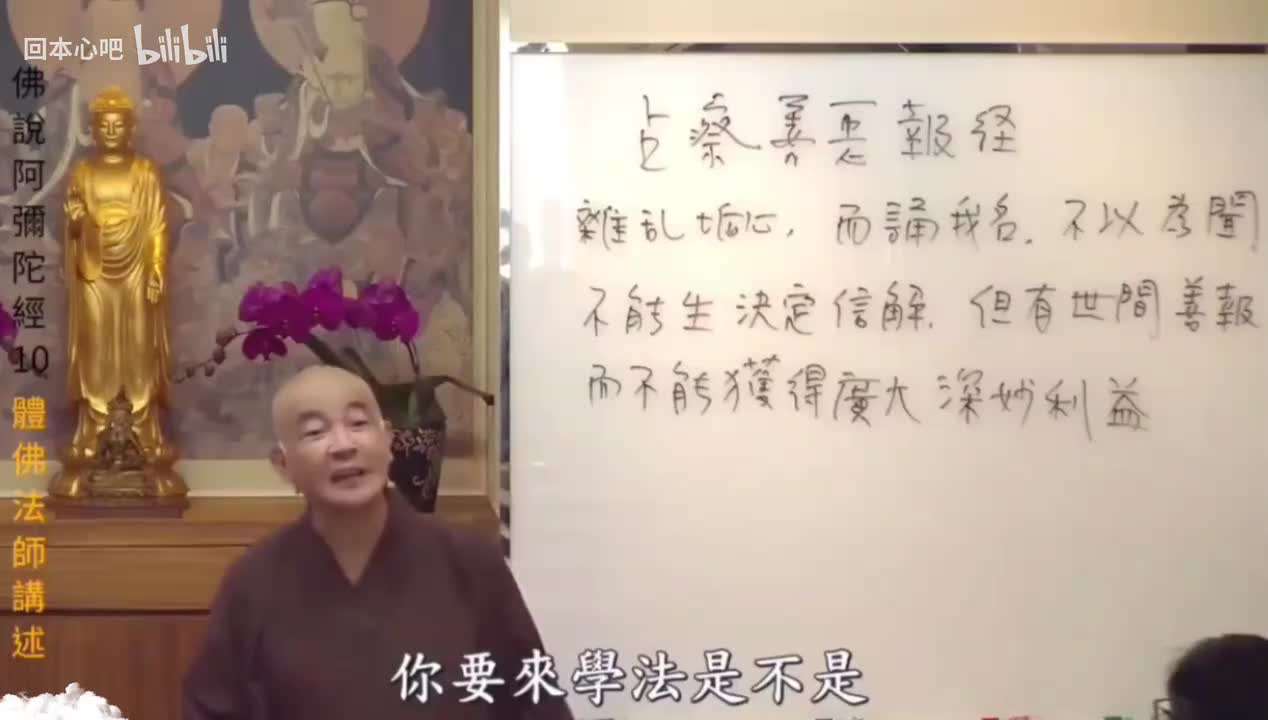 回本心吧 bilibili
佛說阿彌陀經10 體佛法師講述
占察善悪報経
雜乱垢心，而誦我名．不以為聞
不能生決定信解．但有世間善報
而不能獲得廣大深妙利益
你要來學法是不是